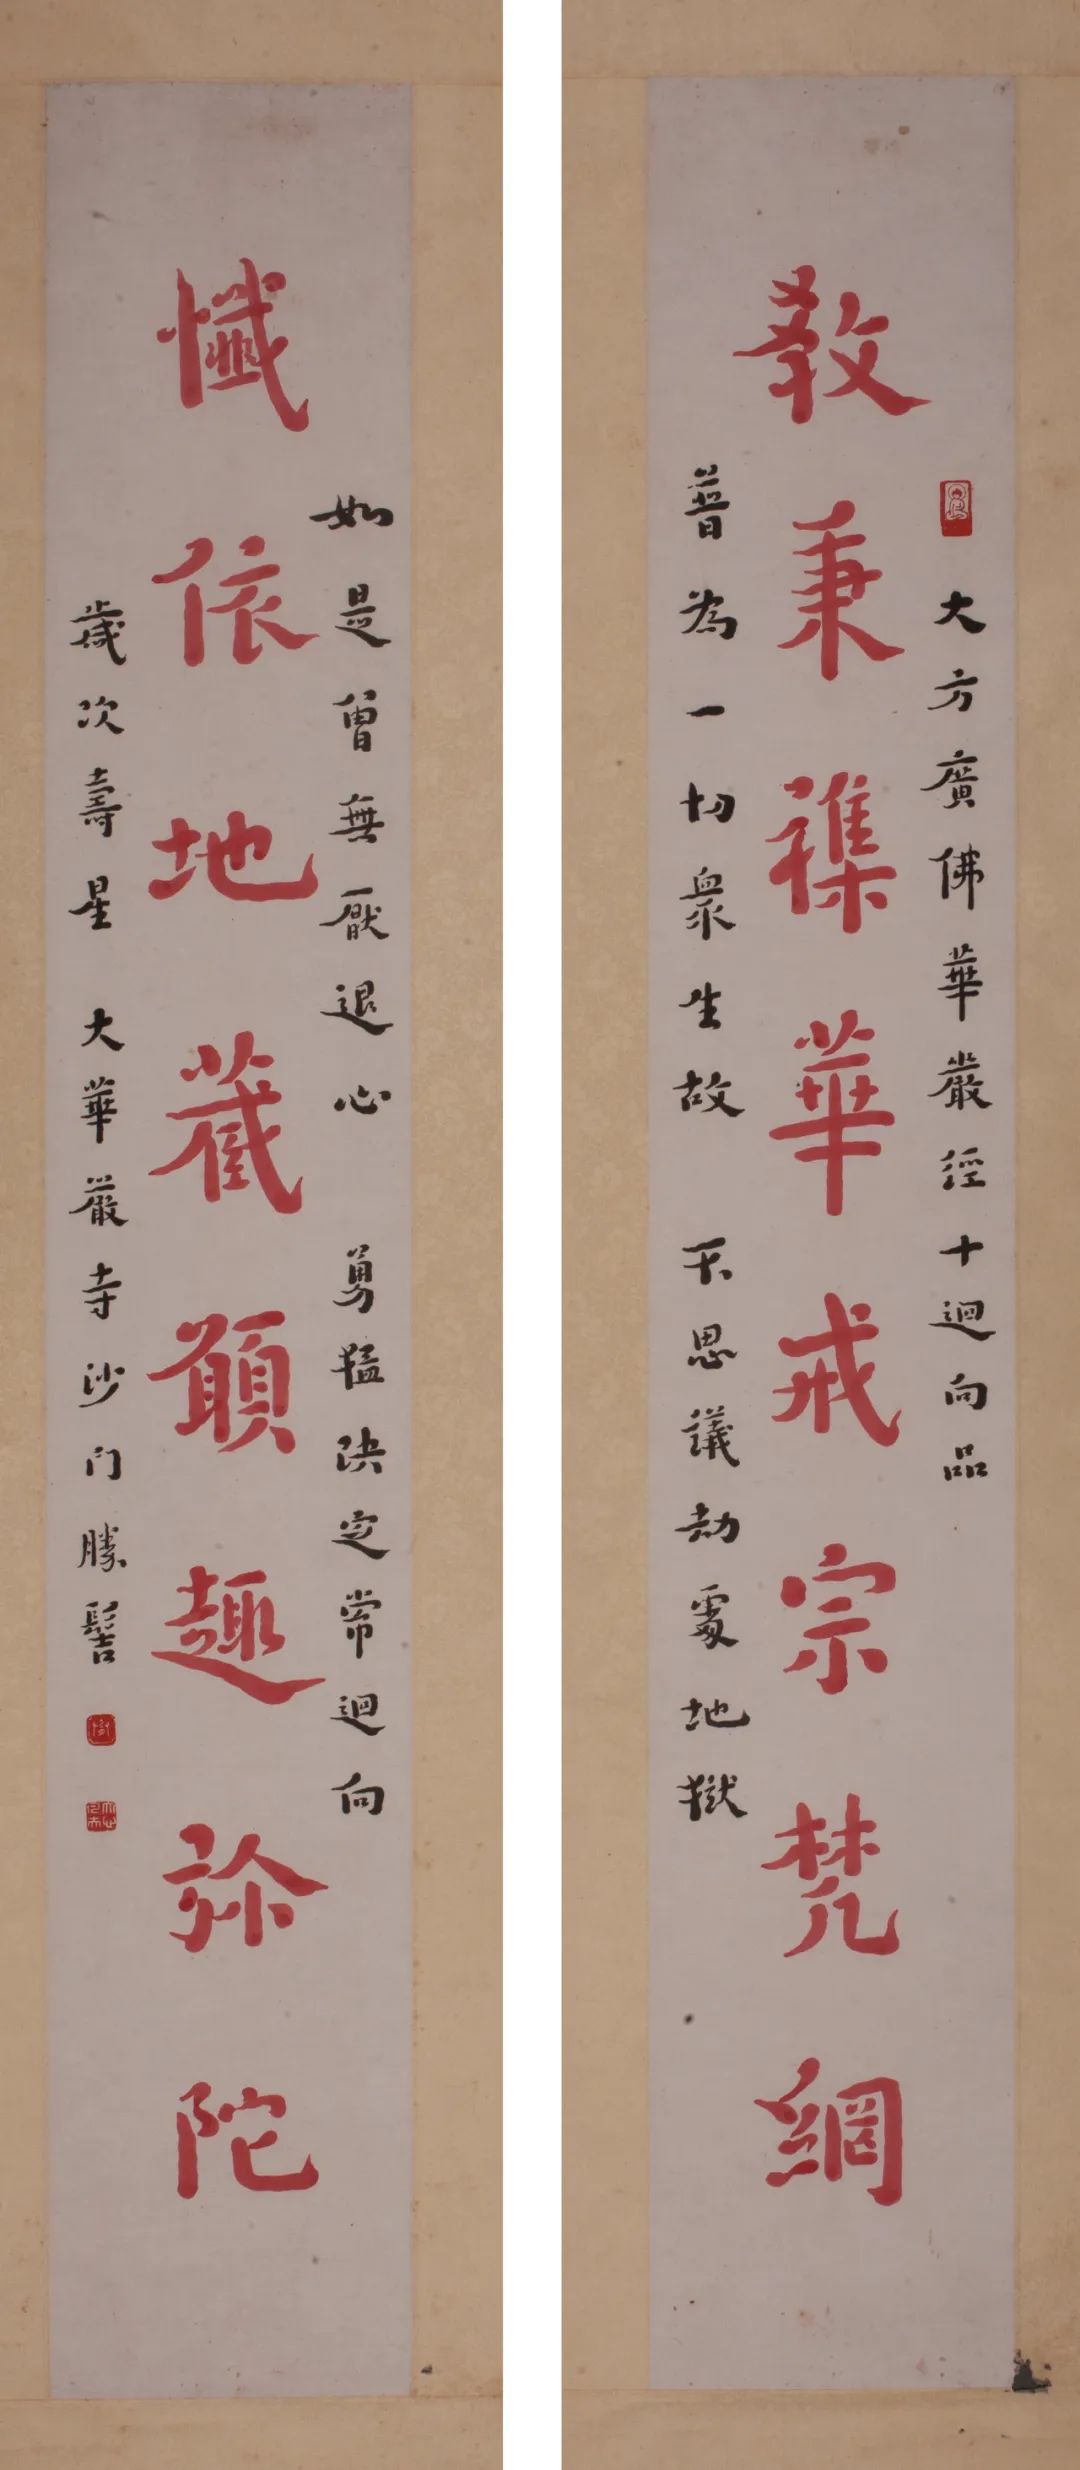 大方廣佛華嚴經十迴向品
教秉襍華戒宗梵網
普為一切衆生故 不思議劫處地獄
如是曾無厭退心 勇猛決定常迴向
懺依地藏願趣弥陀
歲次壽星 大華嚴寺沙门勝髻